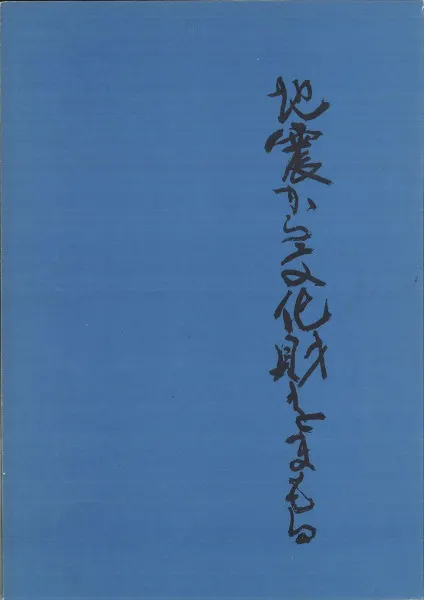 地震から文化財をまもる